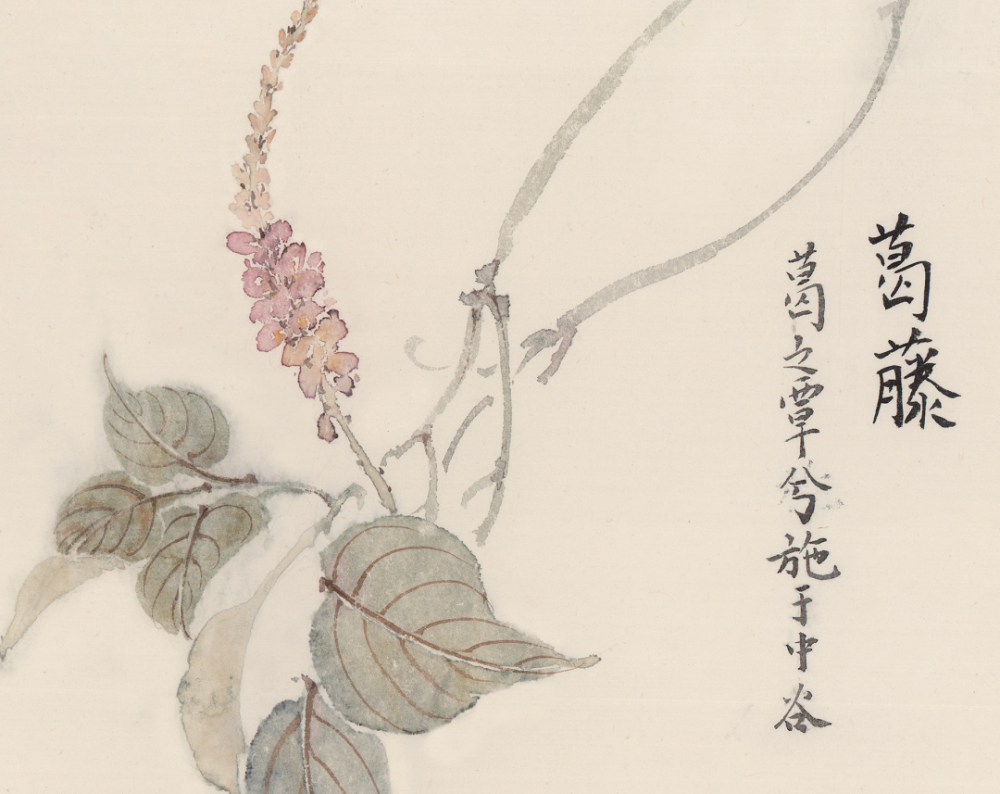 葛藤
葛之覃兮施于中谷